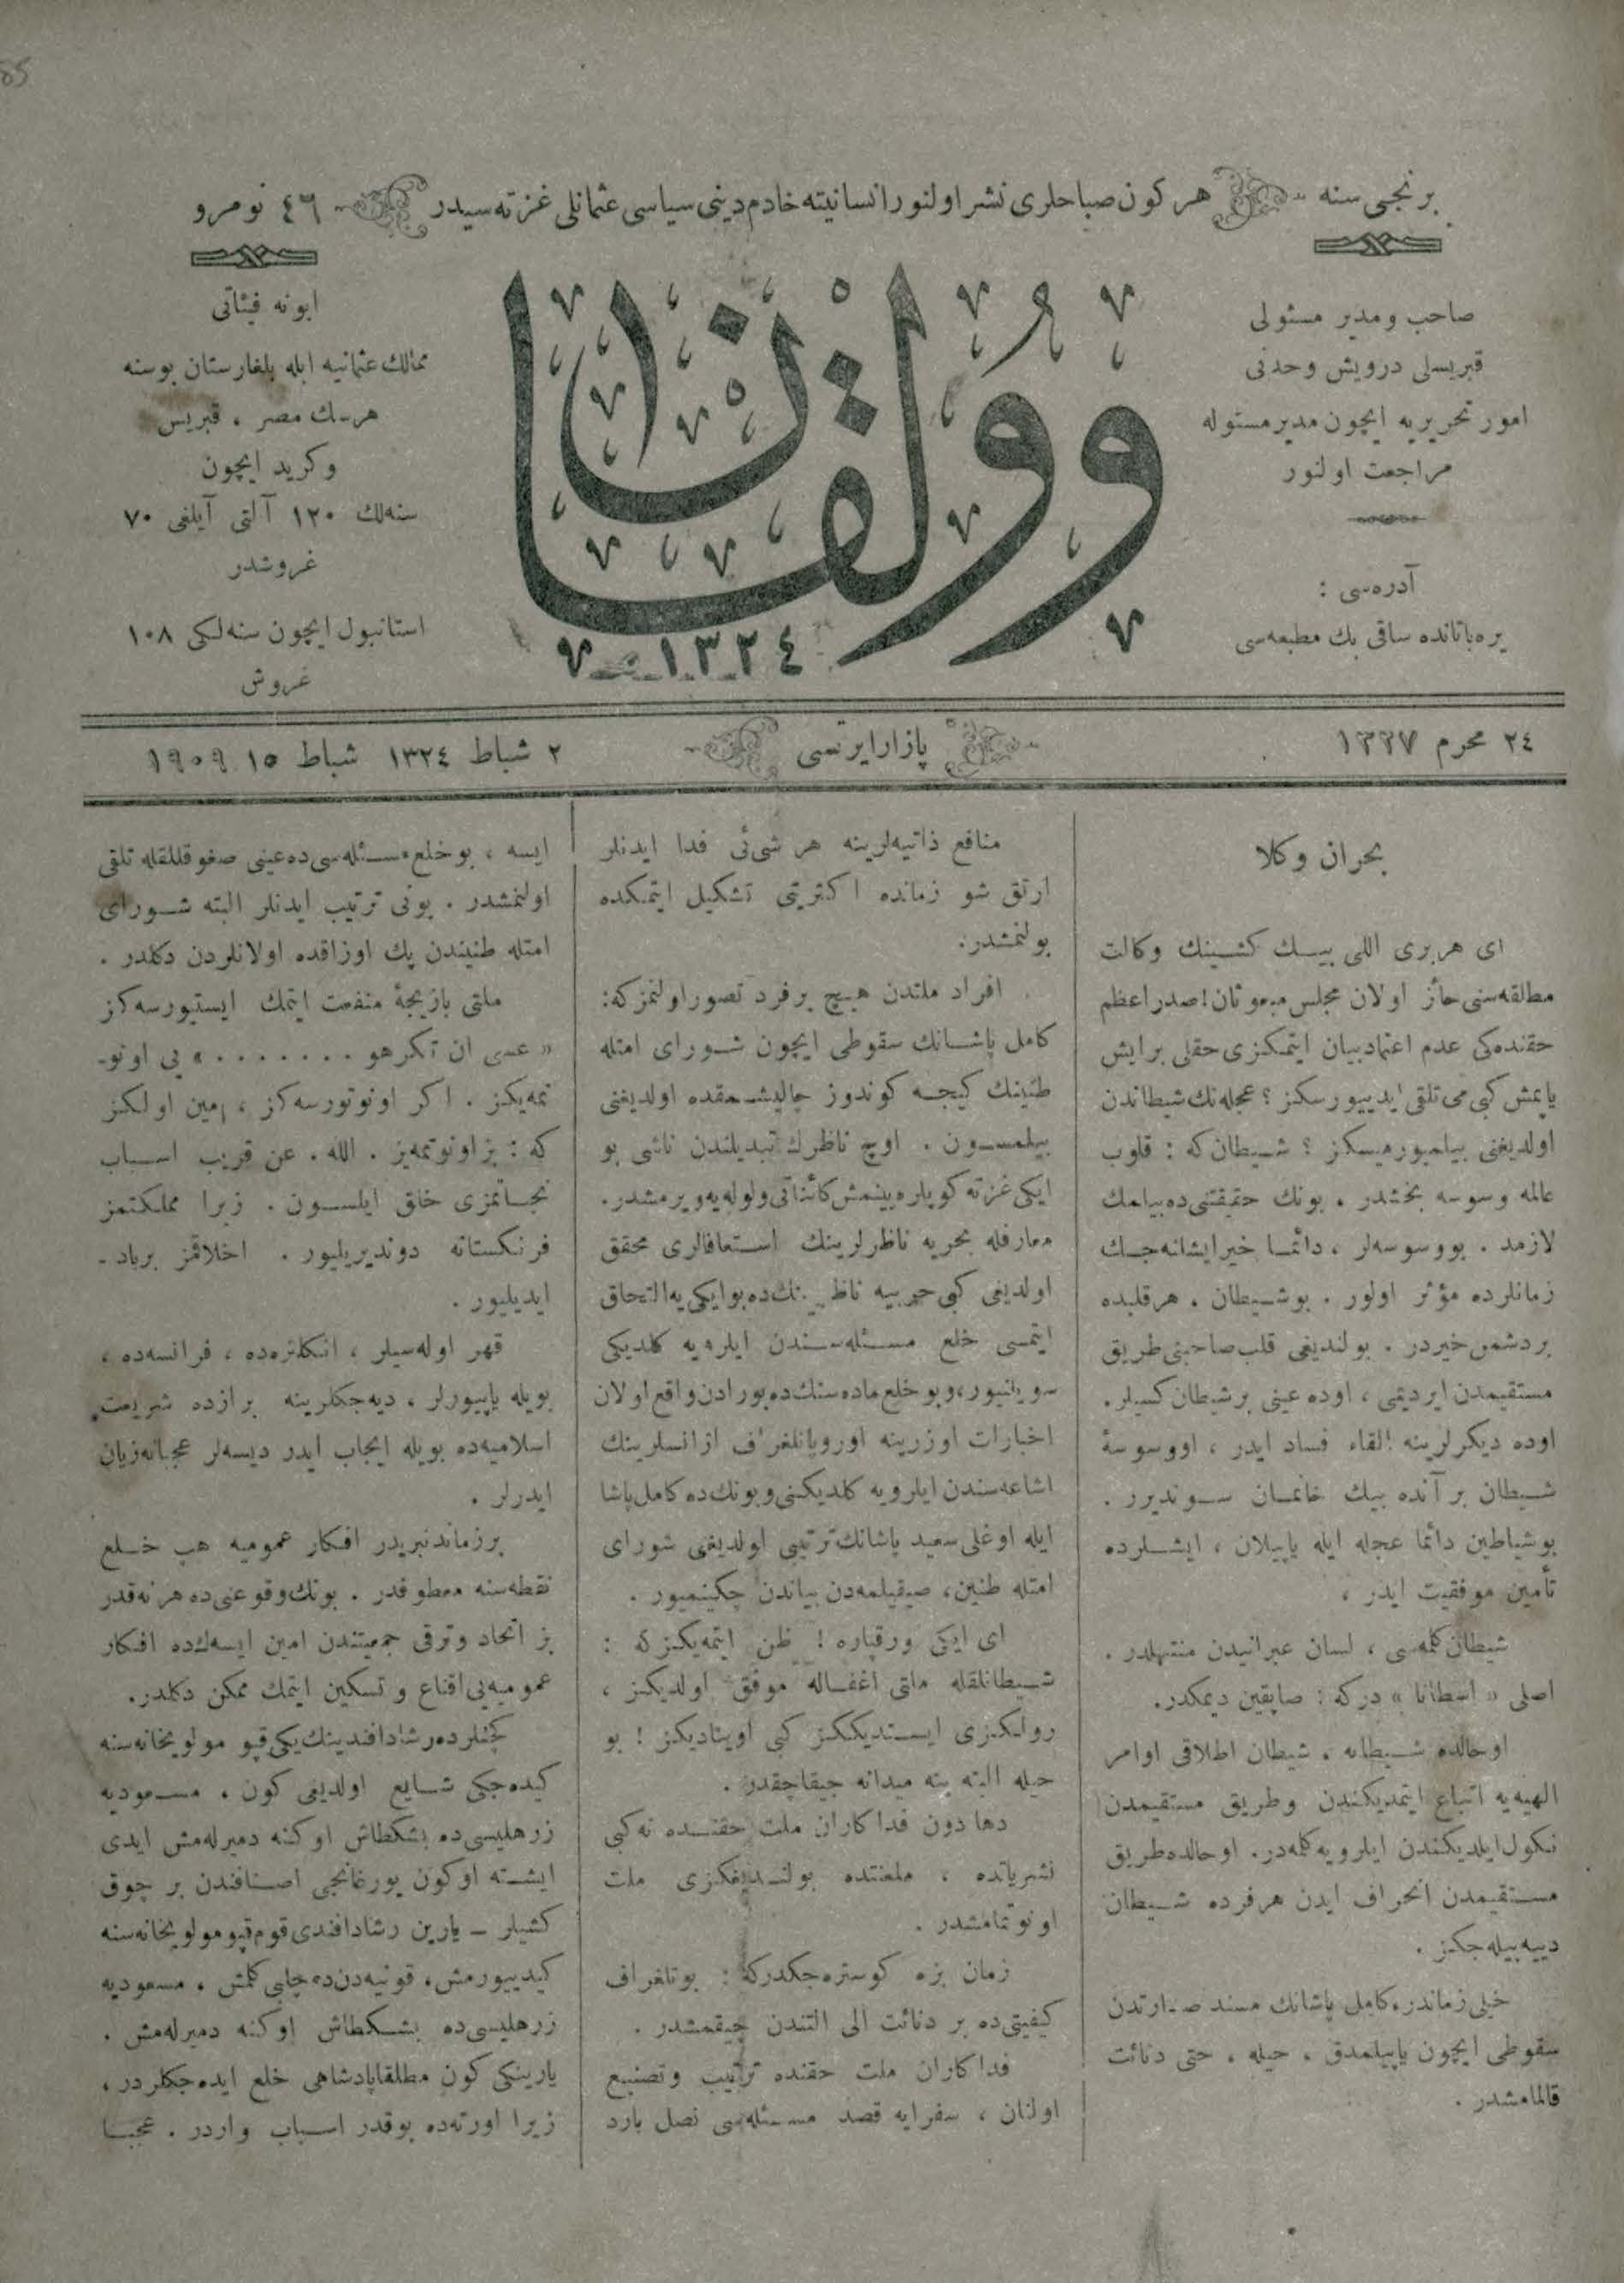 برنجی سنه
هر كون صباحلری نشر اولنور انسانیته خادم دینی سیاسی عثمانلی غزته‌سیدر
٤٦ نومرو
صاحب و مدیر مسئولی
قبریسلی درویش وحدتی
امور تحریریه ایچون مدیر مسئوله
مراجعت اولنور
آدره‌سی :
یره‌باتانده ساقی بك مطبعه‌سی
وولقان
١٣٢٤
ابونه فیئاتی
ممالك عثمانیه ایله بلغارستان بوسنه
هرسك مصر ، قبریس
وكرید ایچون
سنه‌لك ١٢٠ آلتی آیلغی ٧٠
غروشدر
استانبول ایچون سنه‌لكی ١٠٨
غروش
٢٤ محرم ١٣٢٧
پازار ایرتسی
٢ شباط ١٣٢٤ شباط ١٥ ١٩٠٩
بحران وكلا
ای هربری اللی بیـك كشـینك وكالت
مطلقه‌سنی حائز اولان مجلس مبعوثان! صدر اعظم
حقنده‌كی عدم اعتماد بیان ایتمكزی حقلی برایش
یاپمش كبی می تلقی ایدییورسكز ؟ عجله‌نك شیطاندن
اولدیغنی بیلمیورمیسكز ؟ شـیطان‌كه : قلوب
عالمه وسوسه بخشدر . بونك حقیقتنی‌ده بیلمك
لازمد . بو وسوسه‌لر ، دائمـا خیر ایشانه‌جـك
زمانلرده مؤثر اولور . بوشـیطان . هرقلبده
بردشمن خیردر . بولندیغی قلب صاحبنی طریق
مستقیمدن ایردیمی ، اوده عینی برشیطان كسیلر.
اوده دیكرلرینه القاء فساد ایدر ، او وسوسۀ
شـیطان بر آنده بیك خانمـان سـوندیرر .
بوشیاطین دائما عجله ایله یاپیلان ، ایشـلرده
تأمین موفقیت ایدر ،
شیطان كلمه‌سی ، لسان عبرانیدن منتهلدر .
اصلی « اسطانا » دركه : صاپقین دیمكدر.
اوحالده شـیطانه . شیطان اطلاقی اوامر
الهیه‌یه اتباع ایتمدیكندن وطریق مستقیمدن
نكول ایلدیكندن ایلرویه كلمه‌در. اوحالده طریق
مسـتقیمدن انحراف ایدن هرفرده شـیطان
دییه‌بیله‌جكز .
خیلی زماندر ، كامل پاشانك مسند صدارتدن
سقوطی ایچون یاپیلمدق ، حیله ، حتی دنائت
قالمامشدر .
منافع ذاتیه‌لرینه هر شیئی فدا ایدنلر
ارتق شو زمانده اكثریتی تشكیل ایتمكده
بولنمشدر.
افراد ملتدن هیـچ برفرد تصور اولنمزكه:
كامل پاشـانك سقوطی ایچون شـورای امتله
طنینك كیجـه كوندوز چالیشـمقده اولدیغنی
بیلمسـون . اوچ ناظرك تبدیلندن ناشی بو
ایكی غزته كوپلره‌بینمش كائناتی ولوله‌یه ویرمشدر.
معارفله بحریه ناظرلرینك اسـتعفالری محقق
اولدیغی كبی حربیه ناظرینك‌ده بو ایكی‌یه التحاق
ایتمسی خلع مسـئله‌سـندن ایلرویه كلدیكی
سویلنیور، و بوخلع ماده‌سنك‌ده بورادن واقع اولان
اخبارات اوزرینه اوروپا تلغراف اژانسلرینك
اشاعه‌سندن ایلرویه كلدیكنی و بونك‌ده كامل پاشا
ایله اوغلی سعید پاشانك ترتیبی اولدیغنی شورای
امتله طنین، صیقیلمه‌دن بیاندن چكینمیور .
ای ایكی ورقپاره ! ظن ایتمه‌یكزكه :
شـیطانلقله ملتی اغفـاله موفق اولدیكز ،
رولكزی ایسـتدیككز كبی اوینادیكز ! بو
حیله البته ینه میدانه چیقاچقدر .
دها دون فداكاران ملت حقنـده نه‌كبی
نشریاتده ، ملعنتده بولنـدیغكزی ملت
اونوتمامشدر .
زمان بزه كوستره‌جكدركه : بوتلغراف
كیفیتی‌ده بر دنائت الی التندن چیقمشدر .
فداكاران ملت حقنده ترتیب وتصنیع
اولنان ، سفرایه قصد مسـئله‌سی نصل بارد
ایسه ، بو خلع مسـئله‌سی‌ده عینی صغوقللقله تلقی
اولنمشدر . بونی ترتیب ایدنلر البته شـورای
امتله طنیندن پك اوزاقده اولانلردن دكلدر .
ملتی بازیجۀ منفعت ایتمك ایستیورسه‌كز
« عسی ان تكرهو ....... » یی اونو-
تمه‌یكز . اكر اونوتورسه‌كز ، امین اولكز
كه : بز اونوتمه‌یز . الله . عن قریب اسـباب
نجـاتمزی خلق ایلسـون . زیرا مملكتمز
فرنكستانه دوندیریلیور . اخلاقمز برباد -
ایدیلیور .
قهر اوله‌سیلر ، انكلتره‌ده ، فرانسه‌ده ،
بویله یاپیورلر ، دیه‌جكلرینه برازده شریعت
اسلامیه‌ده بویله ایجاب ایدر دیسه‌لر عجبا نه زیان
ایدرلر .
برزماندنبریدر افـكار عمومیه هب خـلع
نقطه‌سنه معطوفدر . بونك وقوعنی‌ده هرنه‌قدر
بز اتحاد وترقی جمعیتندن امین ایسه‌ك‌ده افـكار
عمومیه‌یی اقناع و تسكین ایتمك ممكن دكلدر.
كچنلرده رشاد افندینك یكی‌قپو مولویخانه‌سنه
كیده‌جكی شـایع اولدیغی كون ، مسـعودیه
زرهلیسی‌ده بشكطاش اوكنه دمیرله‌مش ایدی
ایشـته اوكون یورغانجی اصـنافندن بر چوق
كشیلر – یارین رشاد افندی قوم‌قپو مولویخانه‌سنه
كیدییورمش، قونیه‌دن‌ده چلبی كلمش ، مسعودیه
زرهلیسی‌ده بشـكطاش اوكنه دمیرله‌مش .
یارینكی كون مطلقا پادشاهی خلع ایده‌جكلردر،
زیرا اورته‌ده بوقدر اسـباب واردر . عجبـا